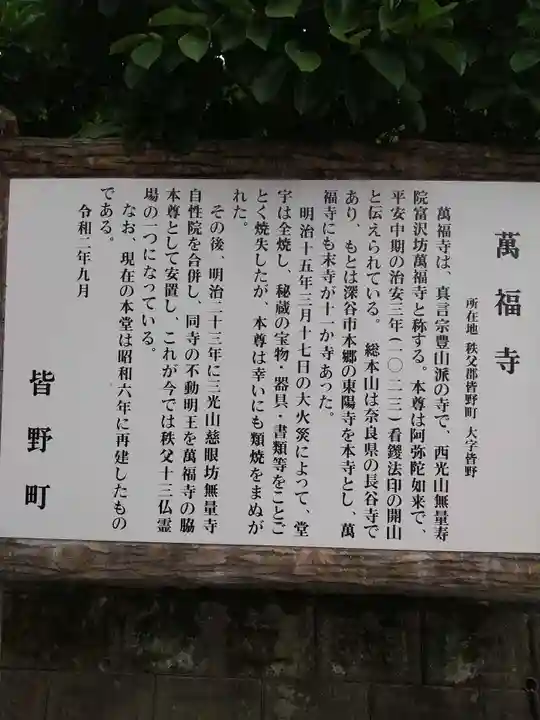 萬福寺
所在地 秩父郡皆野町 大字皆野
萬福寺は、真言宗豊山派の寺で、西光山無量寿
院富沢坊萬福寺と称する。本尊は阿弥陀如来で、
平安中期の治安三年(一〇二三)看鑁法印の開山
と伝えられている。 総本山は奈良県の長谷寺で
あり、もとは深谷市本郷の東陽寺を本寺とし、萬
福寺にも末寺が十一か寺あった。
明治十五年三月十七日の大火災によって、堂
宇は全焼し、秘蔵の宝物・器具・書類等をことご
とく焼失したが、本尊は幸いにも類焼をまぬが
れた。
その後、明治二十三年に三光山慈眼坊無量寺
自性院を合併し、同寺の不動明王を萬福寺の脇
本尊として安置し、これが今では秩父十三仏霊
場の一つになっている。
なお、現在の本堂は昭和六年に再建したもの
である。
令和二年九月
皆野町